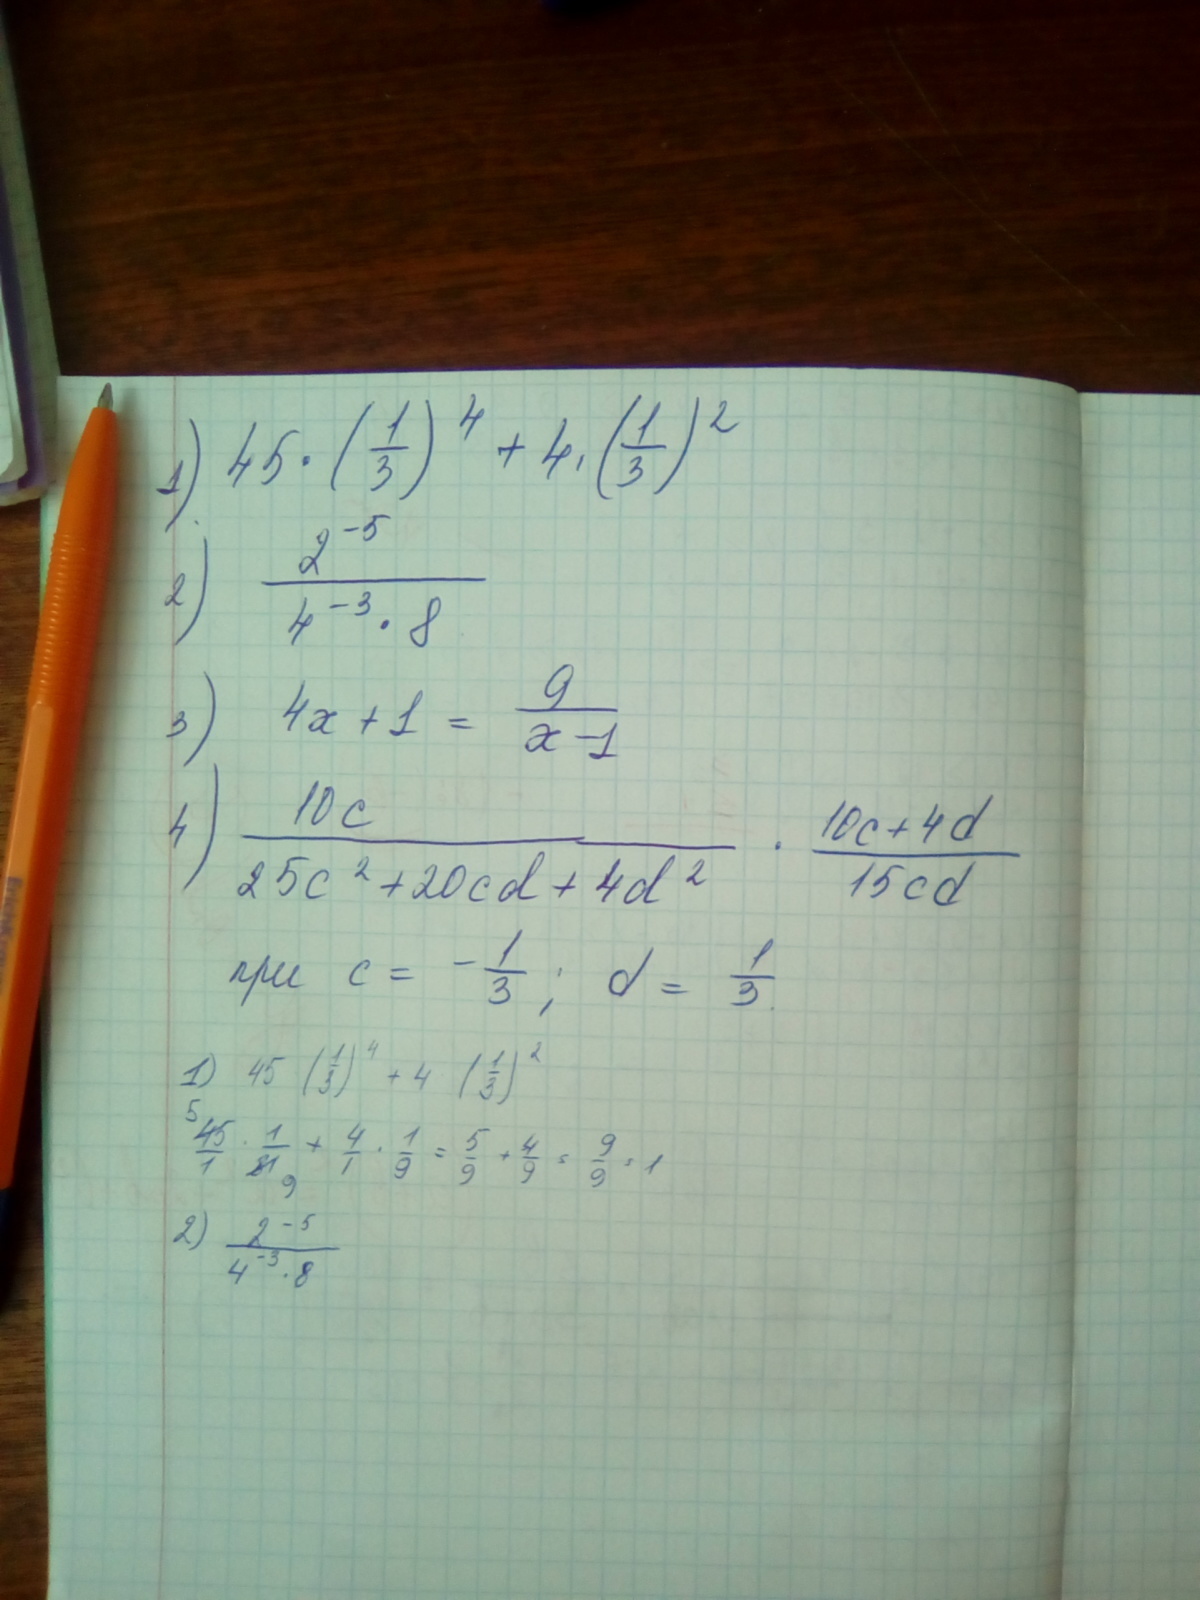 1) 45 · (1/3)^4 + 4 · (1/3)^2
2) 2^-5 / (4^-3 · 8)
3) 4x + 1 = 9/(x-1)
4) 10c / (25c^2 + 20cd + 4d^2) · (10c + 4d)/15cd
при c = -1/3 ; d = 1/3.
1) 45 (1/3)^4 + 4 (1/3)^2
5 45/1 · 1/81 9 + 4/1 · 1/9 = 5/9 + 4/9 = 9/9 = 1
2) 2^-5 / (4^-3 · 8)